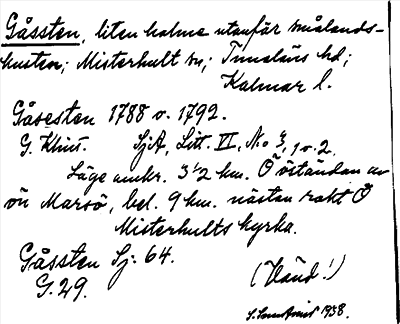 Gåssten, liten holme utanför smålands-
kusten; Misterhult sn; Tunaläns hd;
Kalmar l.
Gåsesten 1788 o. 1792.
G. Klint. SjA, Litt. VI, No 3, 1 o. 2.
Läge omkr. 3 1/2 km. Ö östandan av
ön Marsö, bel. 9 km. nästan rakt Ö
Misterhults kyrka.
Gåssten Sj: 64.
G. 29.
(Vänd!)
1938.